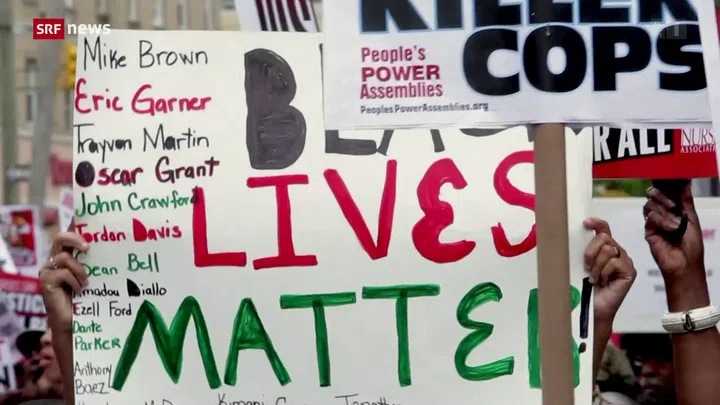 SRF news
Mike Brown
Eric Garner
Trayvon Martin
Oscar Grant
John Crawford
Jordan Davis
Sean Bell
Amadou Diallo
Ezell Ford
Dante
Parker
Anthony
Baez
Kimani
Jonathan
BLACK
LIVES
MATTER!
KILLER
COPS
People's
POWER
Assemblies
PeoplesPowerAssemblies.org
R ALL
NURS
ASSOCIAT